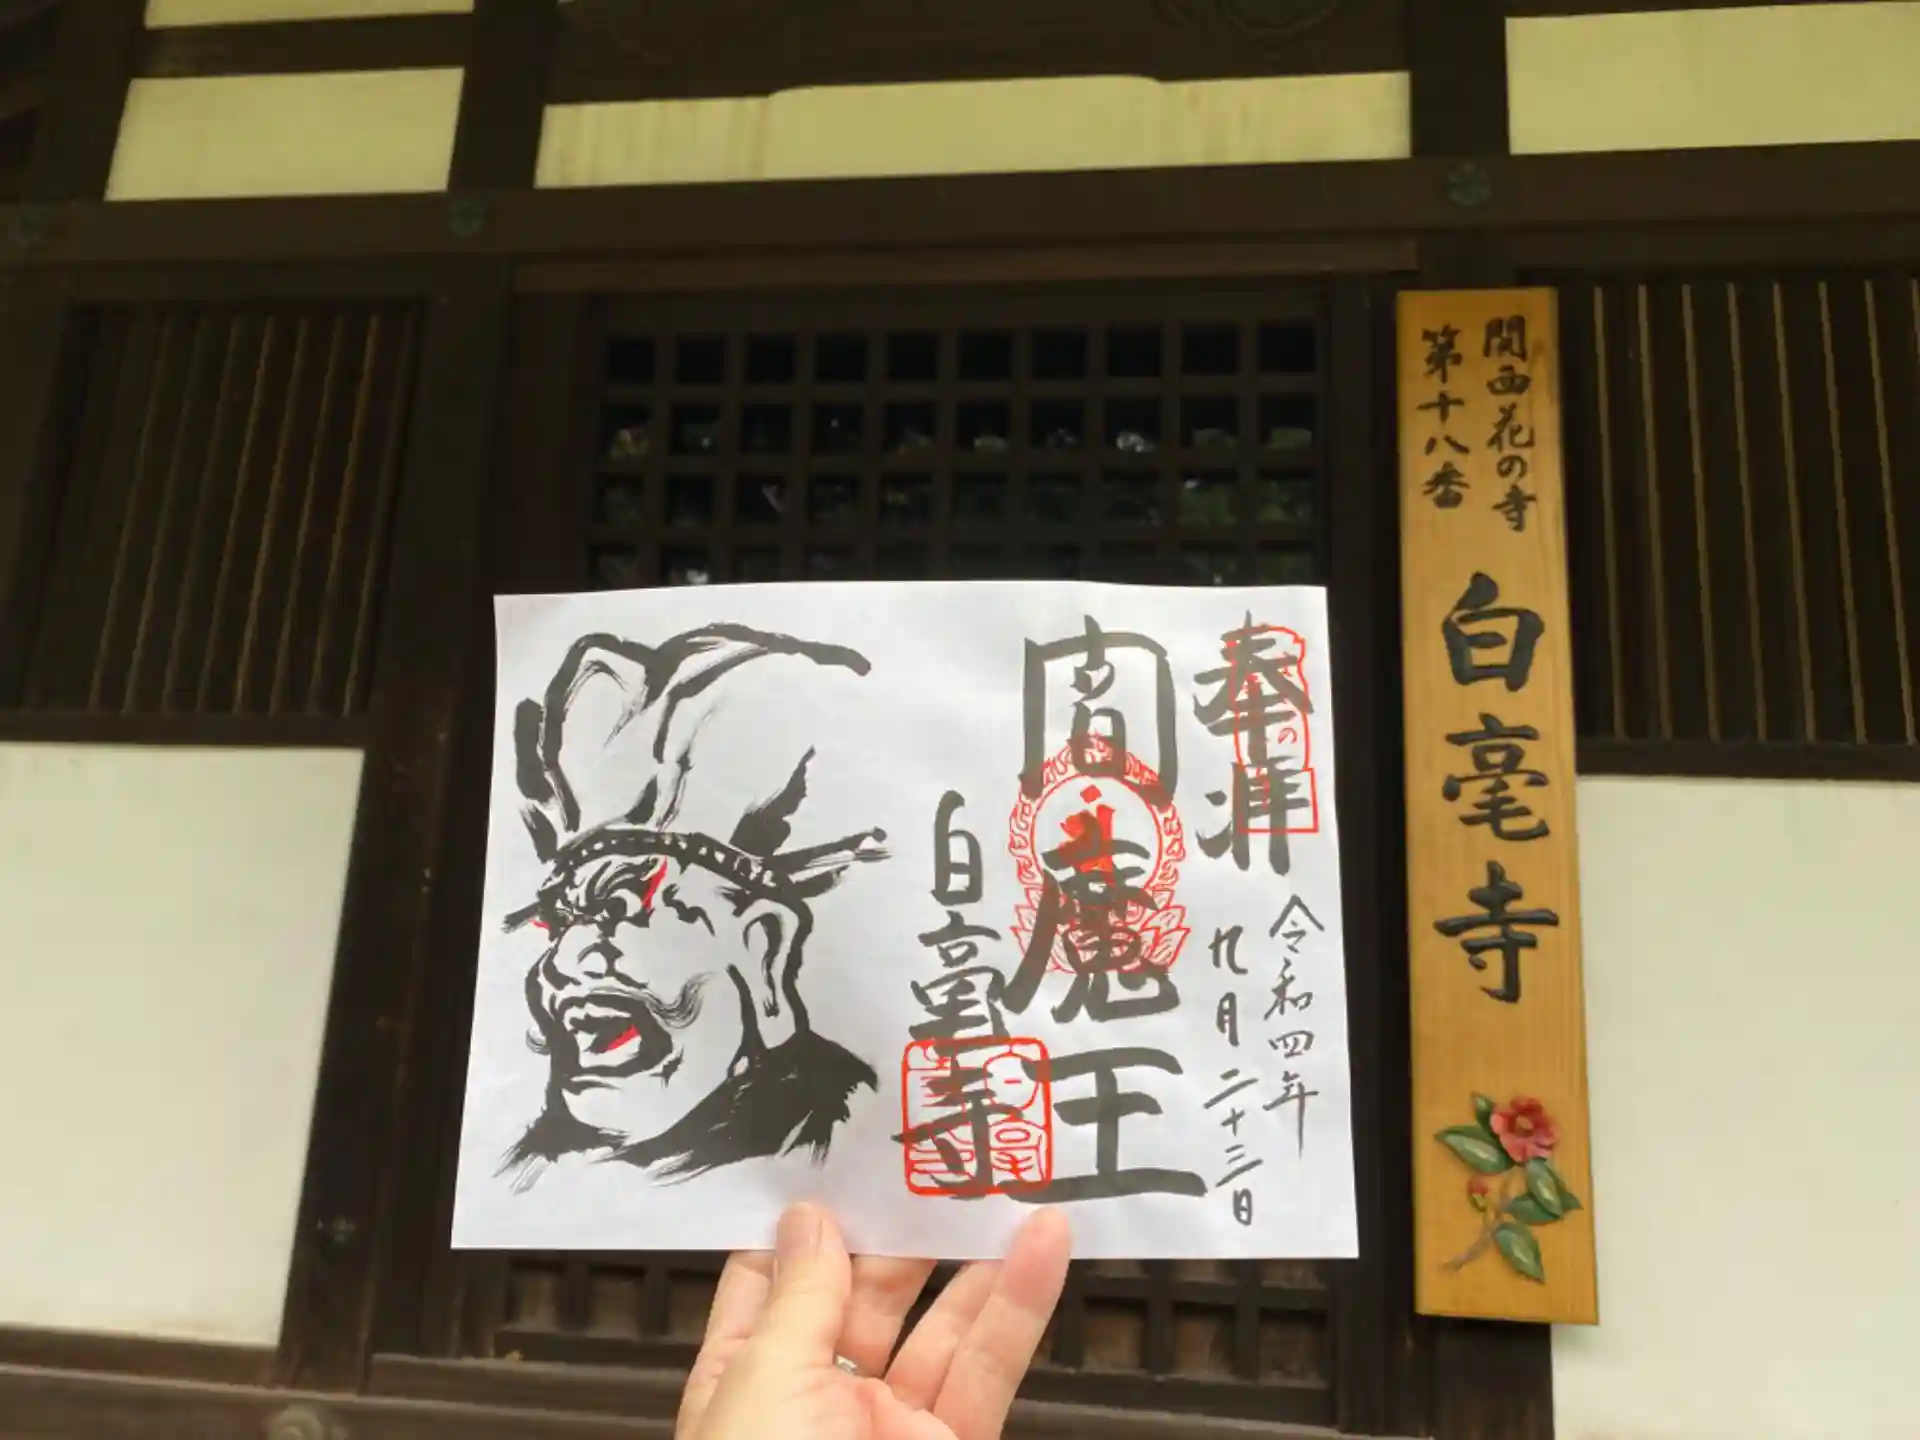 関西花の寺
第十八番
白毫寺
奉拝
令和四年
九月二十三日
閻魔王
白毫寺